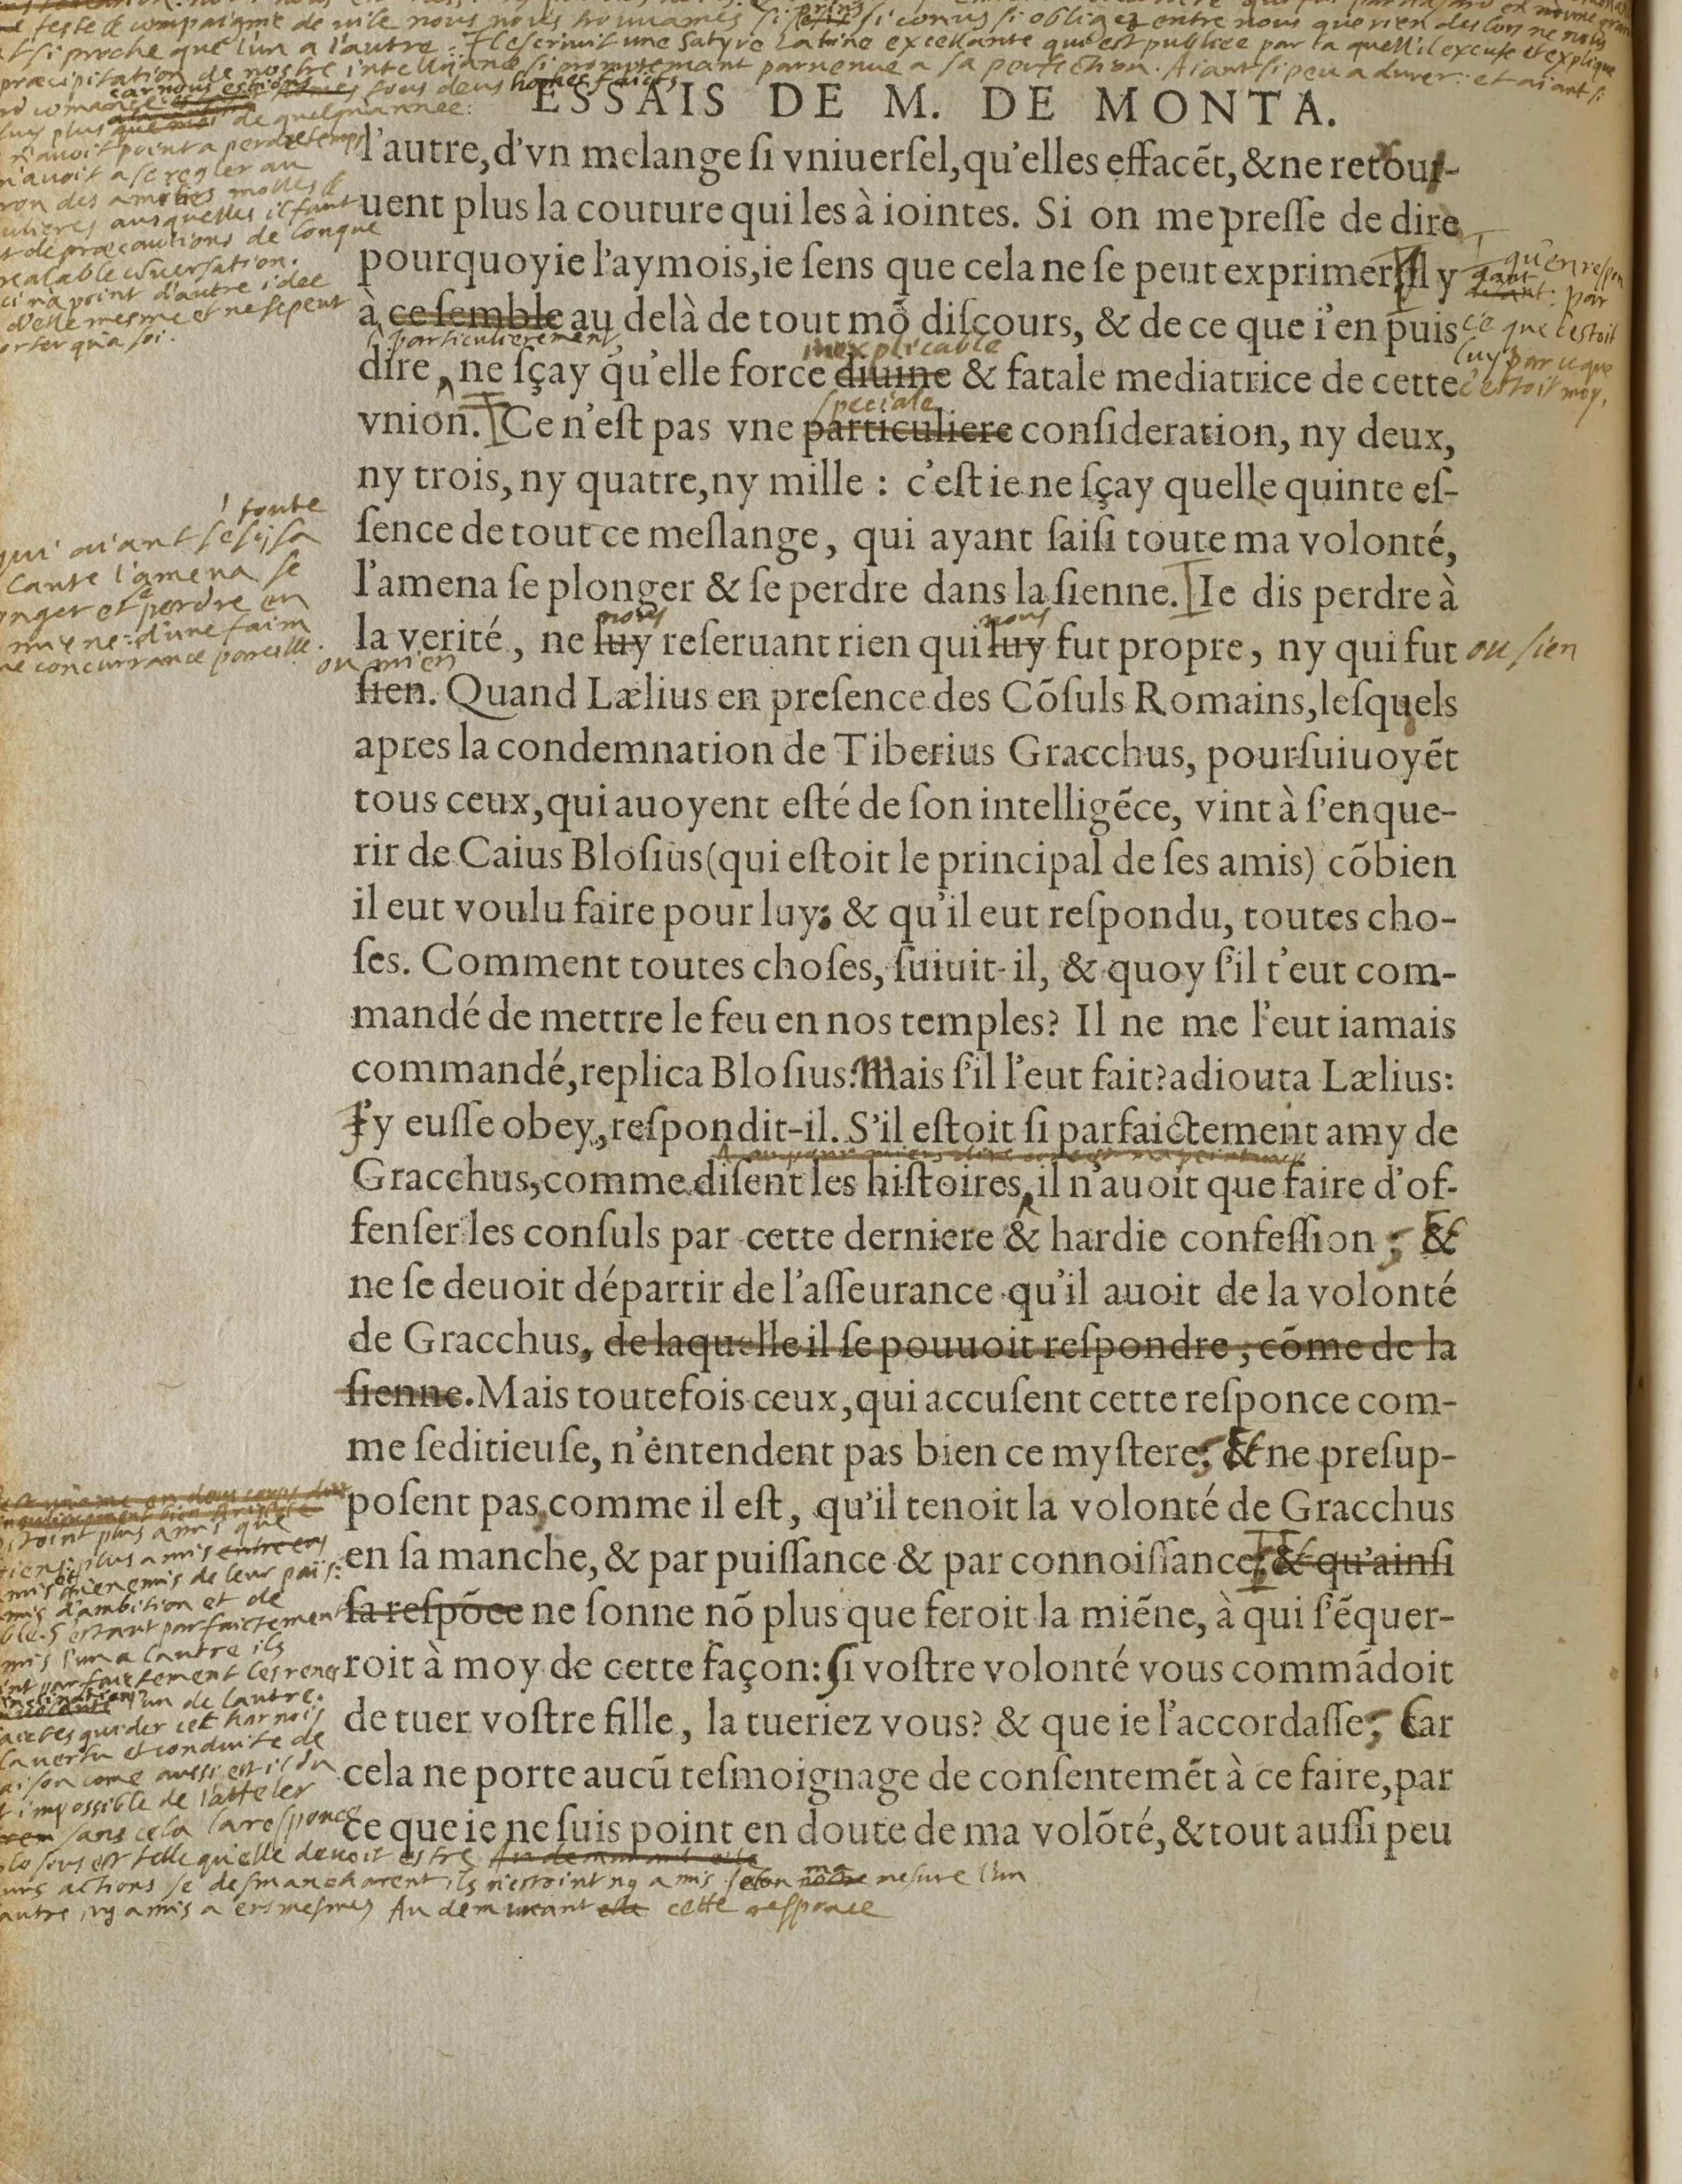 feste & compaignie de vile nous nous trouvames si prins si conus si obligez entre nous que rien des lors ne nous
fut si proche que l'un a l'autre. Il escrivit une Satyre Latine excellante qui est publiee par la quelle il excuse et explique
præcipitation de nostre intelligance si promptemant parvenue a sa perfection. Aiant si peu a durer: et aiant si
car nous estions tous deus homes faicts
ESSAIS DE M. DE MONTA.
luy plus de quelque annee:
n'avoit point a perdre temps
n'avoit a se regler au
des amitiés molles &
ausquelles il faut
de præcautions de longue
realable conversation.
ci n'a point d'autre idee
d'elle mesme et ne se peut
qu'a soi.
l'autre, d'vn melange ſi vniuerſel, qu'elles effacẽt, & ne retou-
uent plus la couture qui les à iointes. Si on me preſſe de dire
pourquoy ie l'aymois, ie ſens que cela ne ſe peut exprimer, Il y
qu'en respon
dant: par
ce que c'estoit
luy par ce que
c'estoit moy.
à ce ſemble au delà de tout mõ diſcours, & de ce que i'en puis
particulierement
inexplicable
dire, ne ſçay qu'elle force diuine & fatale mediatrice de cette
speciale
vnion. Ce n'eſt pas vne particuliere conſideration, ny deux,
ny trois, ny quatre, ny mille : c'eſt ie ne ſçay quelle quinte eſ-
ſence de tout ce meſlange, qui ayant ſaiſi toute ma volonté,
l'amena ſe plonger & ſe perdre dans la ſienne. Ie dis perdre à
toute
qui aiant sesi sa
l'amena se
et se perdre en
miene: d'une faim
concurrance pareille.
nous nous
la verité, ne luy reſeruant rien qui luy fut propre, ny qui fut
ou sien
ou mien
ſien. Quand Lælius en preſence des Cõſuls Romains, leſquels
apres la condemnation de Tiberius Gracchus, pourſuiuoyẽt
tous ceux, qui auoyent eſté de ſon intelligẽce, vint à ſ'enque-
rir de Caius Bloſius (qui eſtoit le principal de ſes amis) cõbien
il eut voulu faire pour luy; & qu'il eut reſpondu, toutes cho-
ſes. Comment toutes choſes, ſuiuit-il, & quoy ſ'il t'eut com-
mandé de mettre le feu en nos temples? Il ne me l'eut iamais
commandé, replica Bloſius: Mais ſ'il l'eut fait? adiouta Lælius:
I'y euſſe obey, reſpondit-il. S'il eſtoit ſi parfaictement amy de
Gracchus, comme diſent les hiſtoires, il n'auoit que faire d'of-
fenſer les conſuls par cette derniere & hardie confeſſion; &
ne ſe deuoit départir de l'aſſeurance qu'il auoit de la volonté
de Gracchus, de laquelle il ſe pouuoit reſpondre, cõme de la
ſienne. Mais toutefois ceux, qui accuſent cette reſponce com-
me ſeditieuſe, n'entendent pas bien ce myſtere: & ne preſup-
poſent pas, comme il eſt, qu'il tenoit la volonté de Gracchus
en ſa manche, & par puiſſance & par connoiſſance: & qu'ainſi
ſa reſpõce ne ſonne nõ plus que feroit la miẽne, à qui ſ'ẽquer-
roit à moy de cette façon: ſi voſtre volonté vous commãdoit
de tuer voſtre fille, la tueriez vous? & que ie l'accordaſſe; Car
cela ne porte aucũ teſmoignage de conſentemẽt à ce faire, par
ce que ie ne ſuis point en doute de ma volõté, & tout auſſi peu
plus amis que
plus amis
enemis de leur païs:
d'ambition et de
S'estant parfaictement
l'un a l'autre ils
parfaictement les renes
un de l'autre.
guider cet harnois
la vertu et conduite de
come aussi est il du
impossible de l'atteler
sans cela la responce
telle qu'elle devoit estre
actions se desmancharent ils n'estoint ny amis selon ma mesure l'un
autre, ny amis a eus mesmes Au demurant cette responce